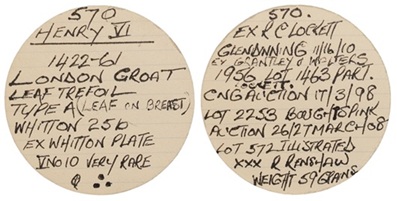 570
HENRY VI
1422-61
LONDON GROAT
LEAF TREFOIL
TYPE A (LEAF ON BREAST)
WHITTON 25b
EX WHITTON PLATE
V NO 10 VERY RARE
570.
EX R C LOCKETT
GLENDINNING 11/6/10
EX GRANTLEY & WOLTERS
1956 LOT 1463 PART.
CNG AUCTION 17/3/98
LOT 2253 BOUGHT SPINK
AUCTION 26/27 MARCH 08
LOT 572 ILLUSTRATED
XXX R RENSHAW
WEIGHT 59 GRAINS